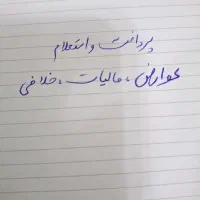 پرداخت و استعلام
عوارض ، مالیات ، خلافی